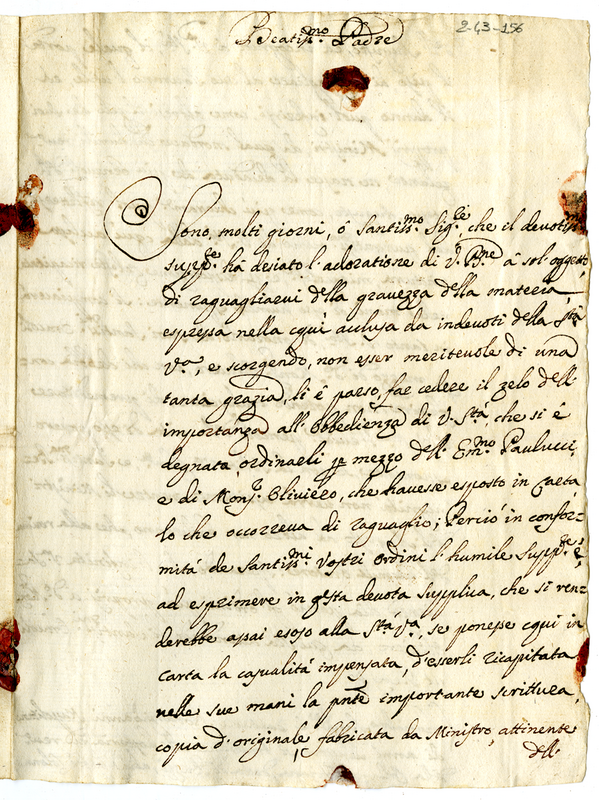 2-43-156
Beatiss.mo Padre
Sono molti giorni, ó Santiss.mo Sig.re, che il devotiss.
supp.te há desiato l'adoratione di V. B.ne á sol' oggetto
di raguagliarvi della gravezza della materia
espressa nella cqui acclusa da indevoti della S.tá
V.a, e scorgendo, non esser meritevole di una
tanta grazia, li é parso, far cedere il zelo dell'
importanza all' Obbedienza di V. S.tá, che si é
degnata ordinarli per mezzo dell' Em.mo Paulucci,
e di Mons.r Oliviero, che havesse esposto in carta
lo che occorreva di raguaglio; Perció in confor=
mitá de Santiss.mi Vostri Ordini l'humile Supp.te é,
ad esprimere in questa devota supplica, che si ren=
derebbe assai esoso alla S.tá V.a, se ponesse cqui in
carta la casualitá impensata, d'esserli ricapitata
nelle sue mani la pnte importante scrittura,
copia d'originale, fabricata da Ministro, attinente
dell'